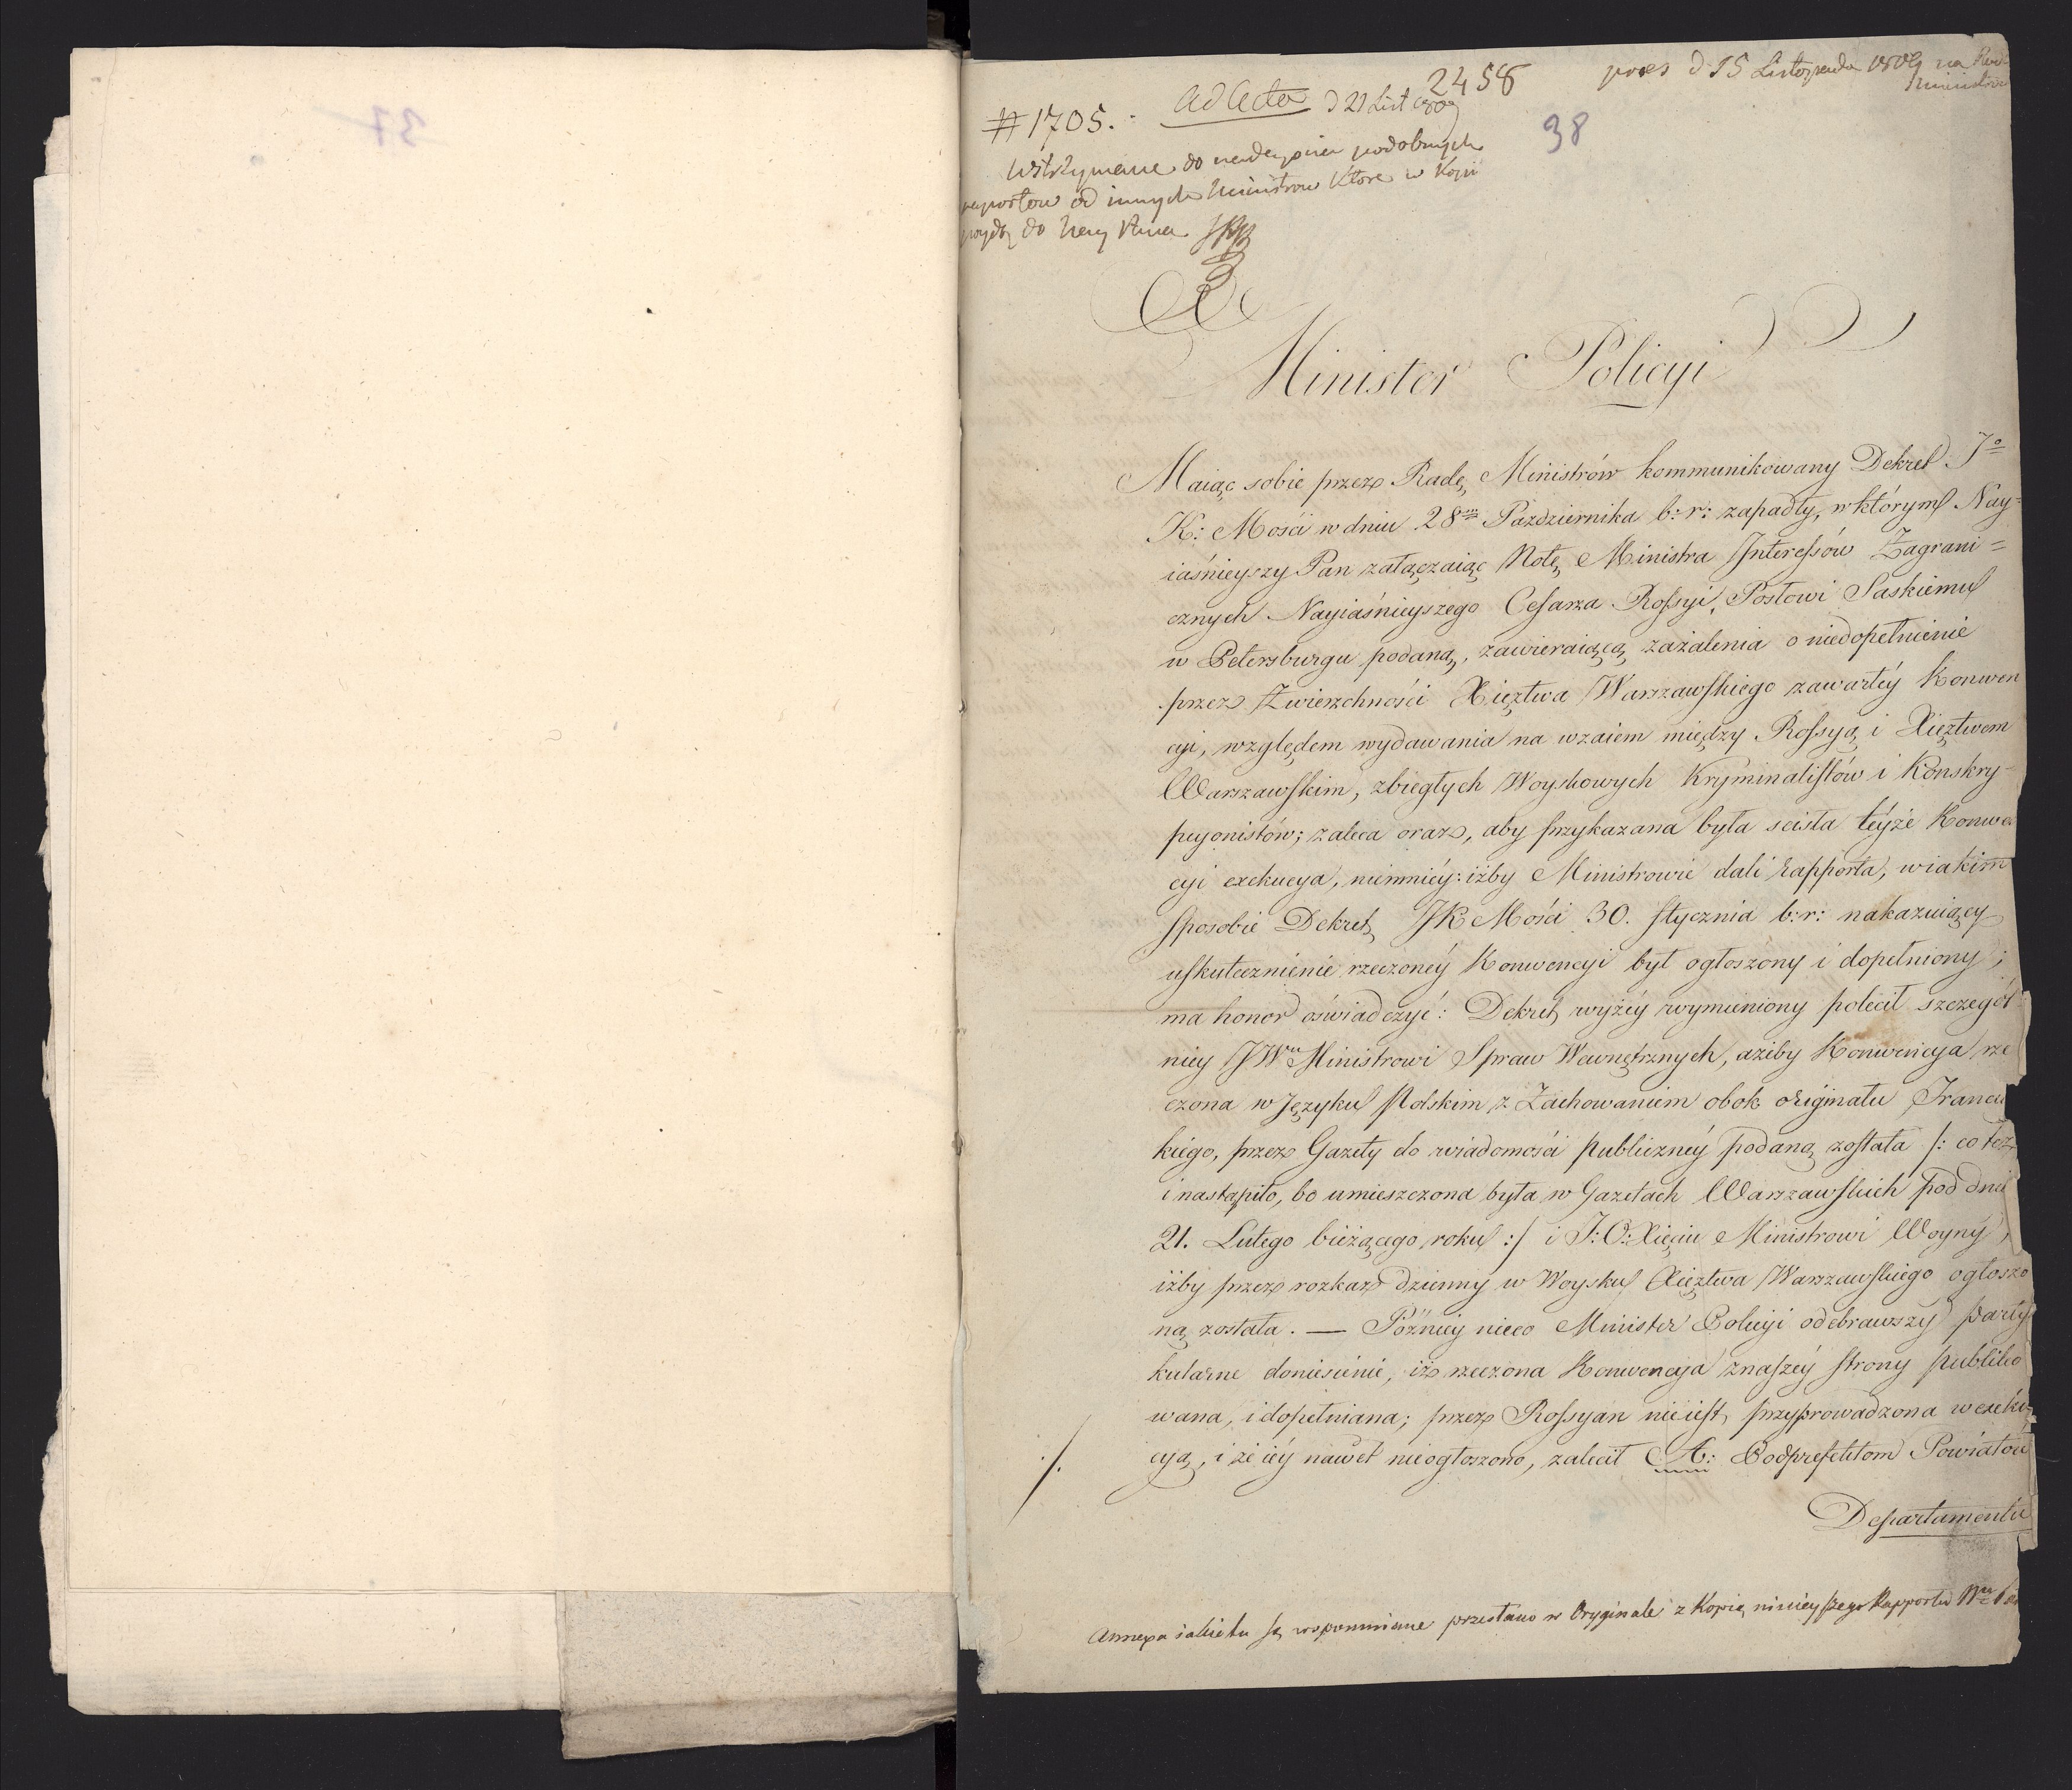 37
2458
pres d 15 Listopada 1809 na Radz
Ministrow
#1705. Ad Acta d 21 List 1809
38
Wstrzymane do nadeyścia podobnych
raportow od innych Ministrow które w Kopii
poydą do Nay Pana
Minister Policyi
Maiąc sobie przez Radę Ministrów kommunikowany Dekret Jo
K: Mości w dniu 28m Pazdziernika b: r: zapadły, w którym Nay=
iaśnieyszy Pan załączaiąc Notę Ministra Interessów Zagrani=
cznych Nayiaśnieyszego Cesarza Rossyi, Posłowi Saskiemu
w Petersburgu podaną, zawieraiącą zażalenia o niedopełnienie
przez Zwierzchności Xięztwa Warszawskiego zawartéy Konwen
cyi, względem wydawania na wzaiem między Rossyą i Xięztwem
Warszawskim, zbiegłych Woyskowych Kryminalistów i Konskry-
pcyonistów; zaleca oraz, aby przykazana była scisła téyże Konwen
cyi exekucya, niemniéy: iżby Ministrowie dali rapporta, w iakim
sposobie Dekret JK Mości 30. stycznia b: r: nakazuiący
uskutecznienie rzeczonéy Konwencyi był ogłoszony i dopełniony;
ma honor oświadczyć: Dekret wyżéy wymieniony polecił szczegól=
niey JWu Ministrowi Spraw Wewnętrznych, ażiby Konwencya rze
czona w Języku Polskim z Zachowaniem obok originału Francu
kiégo, przez Gazety do wiadomości publicznéy podaną została /: co też
i nastąpiło, bo umieszczona była w Gazetach Warszawskich pod dni
21. Lutego bieżącego roku :/ i J: O: Xięciu Ministrowi Woyny,
iżby przez rozkaz dzienny w Woysku Xięztwa Warszawskiego ogłoszo
ną została. — Pózniey nieco Minister Policyi odebrawszy party
kularne doniesienie, iż rzeczona Konwencya z naszéy strony publiko
wana, i dopełniana; przez Rossyan nie iest przyprowadzona w exeku
cyą, i że iéy nawet nie ogłoszono, zalecił A: Podprefektom Powiatów
./.
Departamentu
Annexa iakie tu są wspomniane przesłano w Oryginale z Kopią ninieyszego Rapportu